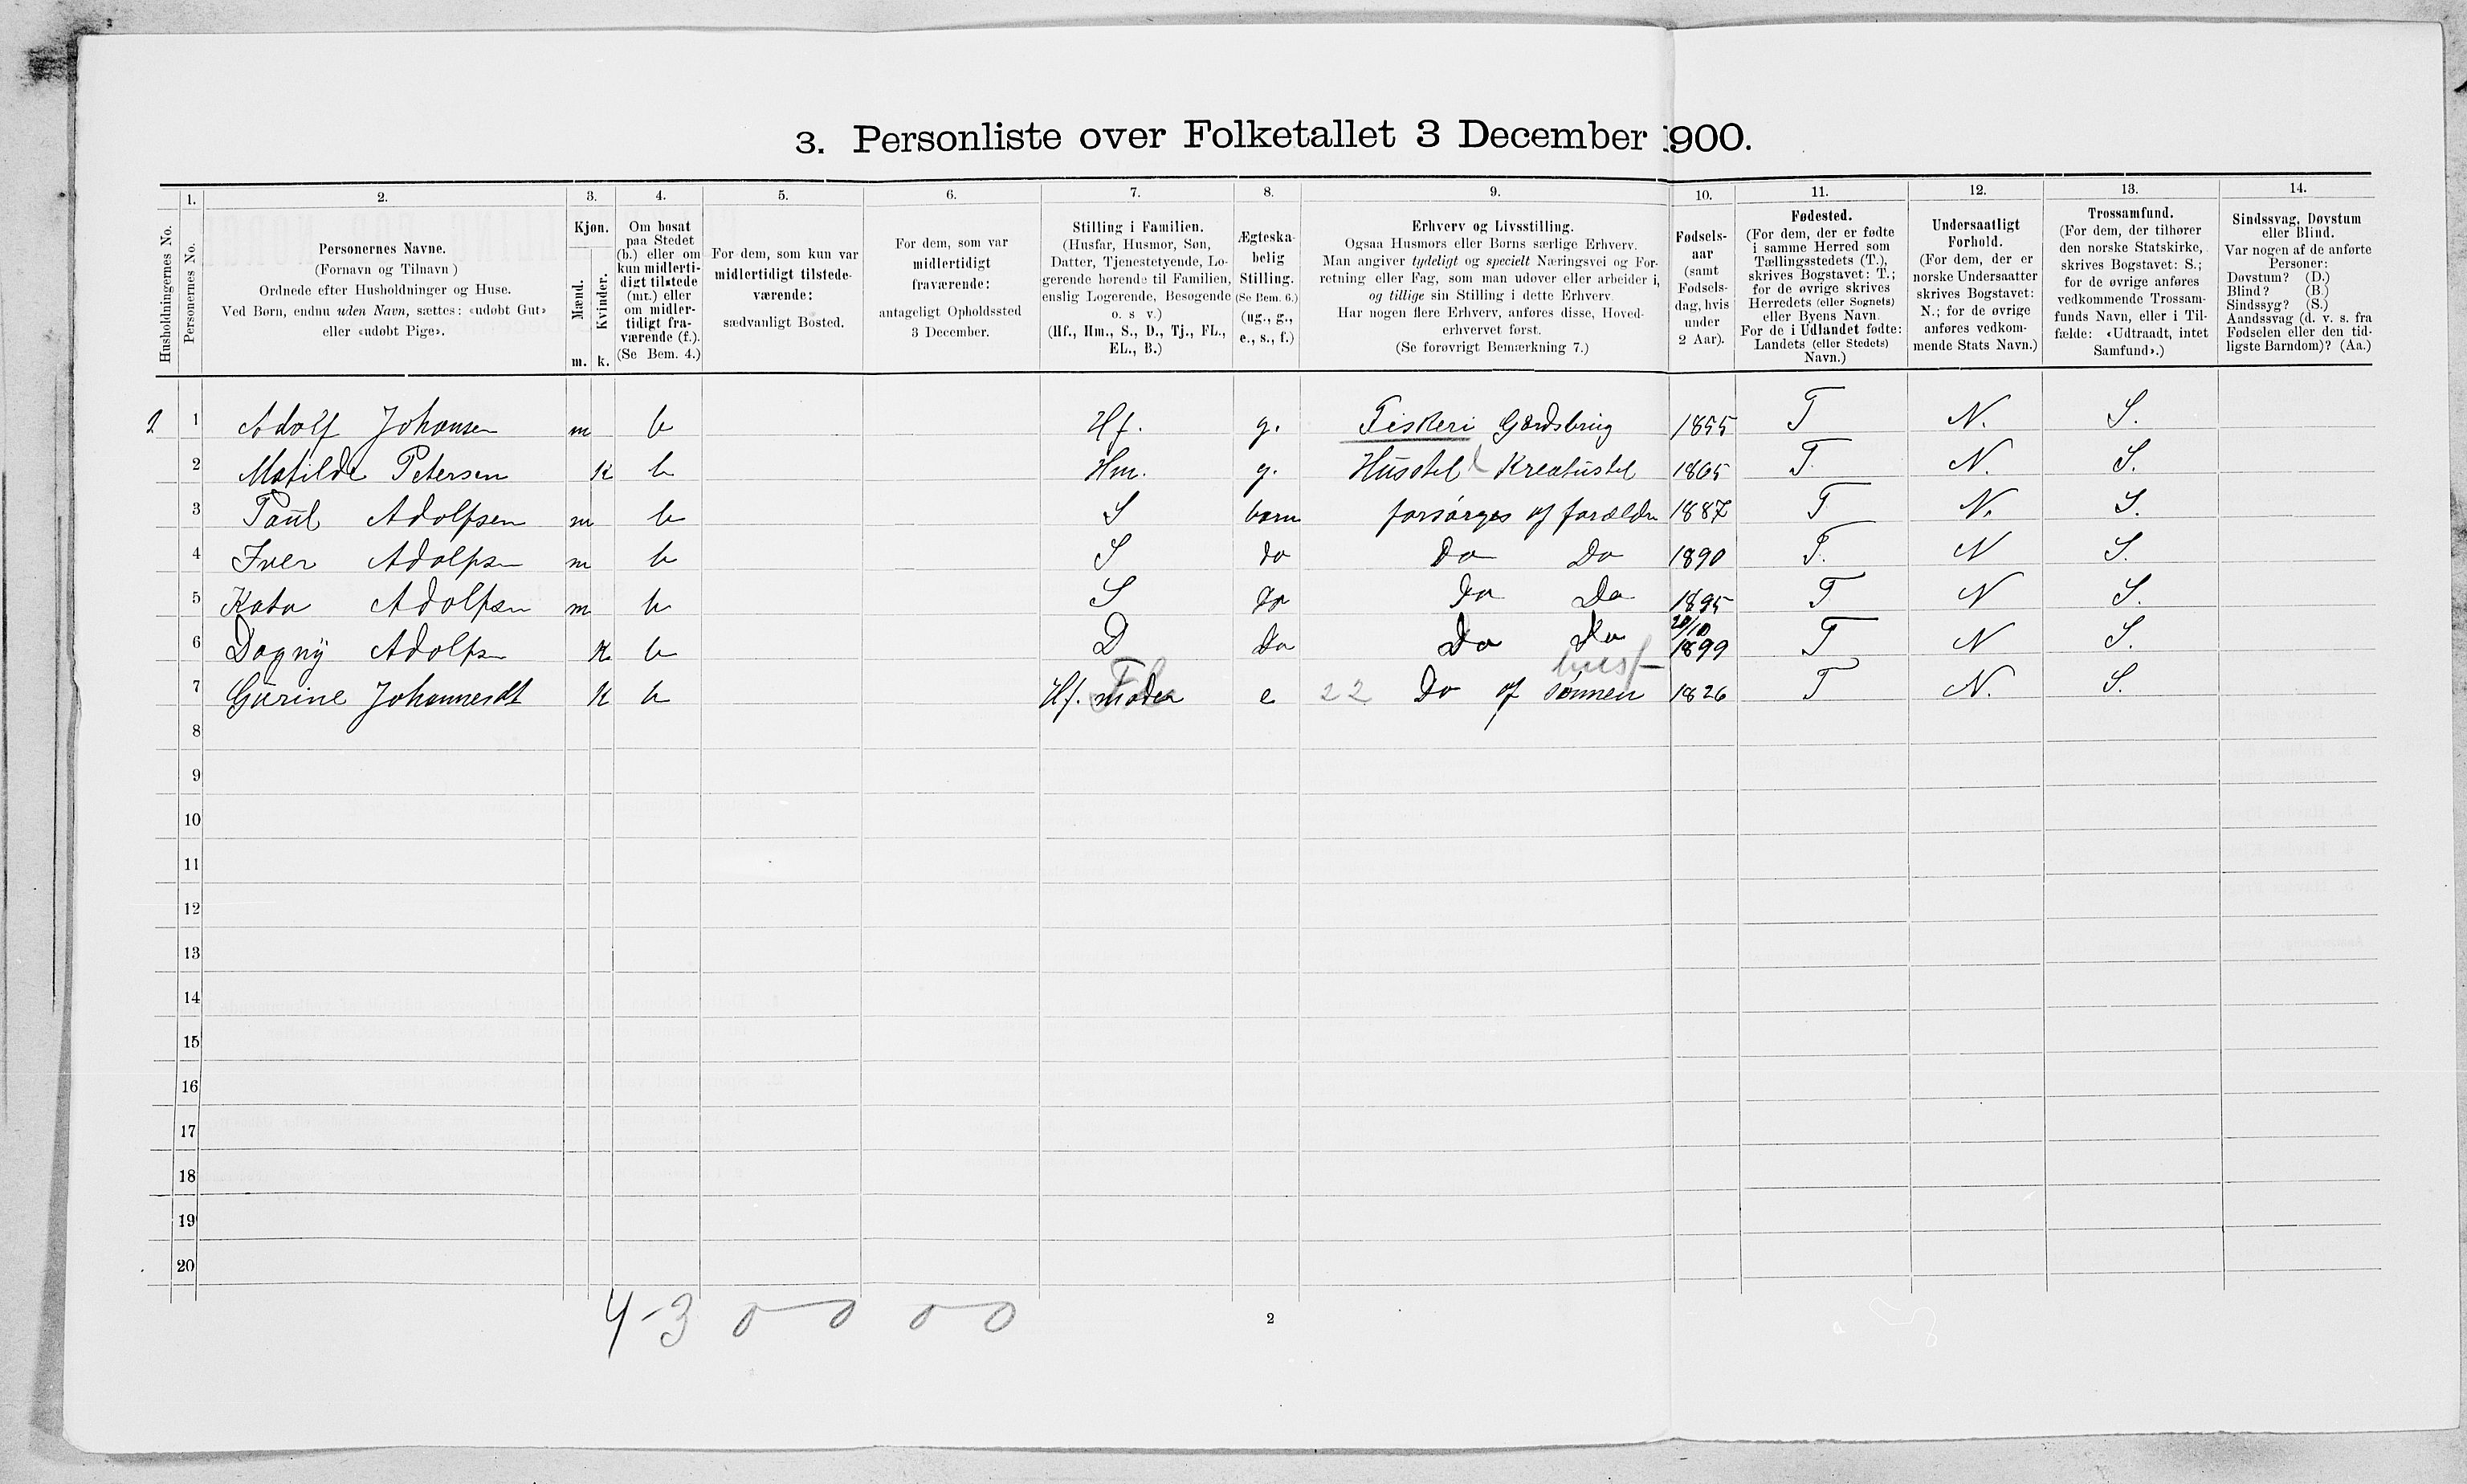 3. Personliste over Folketallet 3 December 1900.
Husholdningernes No.
1. Personernes No.
2. Personernes Navne. (Fornavn og Tilnavn) Ordnede efter Husholdninger og Huse. Ved Børn, endnu uden Navn, sættes: «udøbt Gut» eller «udøbt Pige».
3. Kjøn. Mænd. m. Kvinder. k.
4. Om bosat paa Stedet (b.) eller om kun midlertidigt tilstede (mt.) eller om midlertidigt fraværende (f.). (Se Bem. 4.)
5. For dem, som kun var midlertidigt tilstedeværende: sædvanligt Bosted.
6. For dem, som var midlertidigt fraværende: antageligt Opholdssted 3 December.
7. Stilling i Familien. (Husfar, Husmor, Søn, Datter, Tjenestetyende, Logerende hørende til Familien, enslig Logerende, Besøgende o. s v.) (Hf., Hm., S., D., Tj., FL., EL., B.)
8. Ægteskabelig Stilling. (Se Bem. 6.) (ug., g., e., s., f.)
9. Erhverv og Livsstilling. Ogsaa Husmors eller Børns særlige Erhverv. Man angiver tydeligt og specielt Næringsvei og Forretning eller Fag, som man udøver eller arbeider i, og tillige sin Stilling i dette Erhverv. Har nogen flere Erhverv, anføres disse, Hovederhvervet først. (Se forøvrigt Bemærkning 7.)
10. Fødselsaar (samt Fødselsdag, hvis under 2 Aar).
11. Fødested. (For dem, der er fødte i samme Herred som Tællingsstedets (T.), skrives Bogstavet: T.; for de øvrige skrives Herredets (eller Sognets) eller Byens Navn. For de i Udlandet fødte: Landets (eller Stedets) Navn.)
12. Undersaatligt Forhold. (For dem, der er norske Undersaatter skrives Bogstavet: N.; for de øvrige anføres vedkommende Stats Navn.)
13. Trossamfund. (For dem, der tilhører den norske Statskirke, skrives Bogstavet: S.; for de øvrige anføres vedkommende Trossamfunds Navn, eller i Tilfælde: «Udtraadt, intet Samfund».)
14. Sindssvag, Døvstum eller Blind. Var nogen af de anførte Personer: Døvstum? (D.) Blind? (B.) Sindssyg? (S.) Aandssvag (d. v. s. fra Fødselen eller den tidligste Barndom)? (Aa.)
1 Adolf Johansen m b Hf. g. Fiskeri Gardsbrug 1855 T N. S.
2 Matilde Petersen K b Hm. g. Husstel Kreaturstel 1865 T. N. S.
3 Paul Adolfsen m b S barn forsørges af forældre 1887 T N. S.
4 Iver Adolfsen m b S do Do Do 1890 T. N S.
5 Kato Adolfsen m b S Do Do Do 1895 T N S.
6 Dagny Adolfsen K b D Do Do Do 20/10 1899 T N S.
7 Gurine Johannesdt K b Hf. moder Fl e 22 Do af sønnen husf 1826 T N. S.
8
9
10
11
12
13
14
15
16
17
18
19
20
4-3 0 0 0 0
2